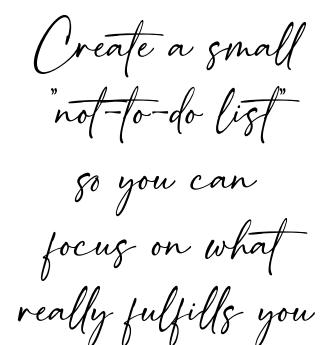 Create a small
"not-to-do list"
so you can
focus on what
really fulfills you